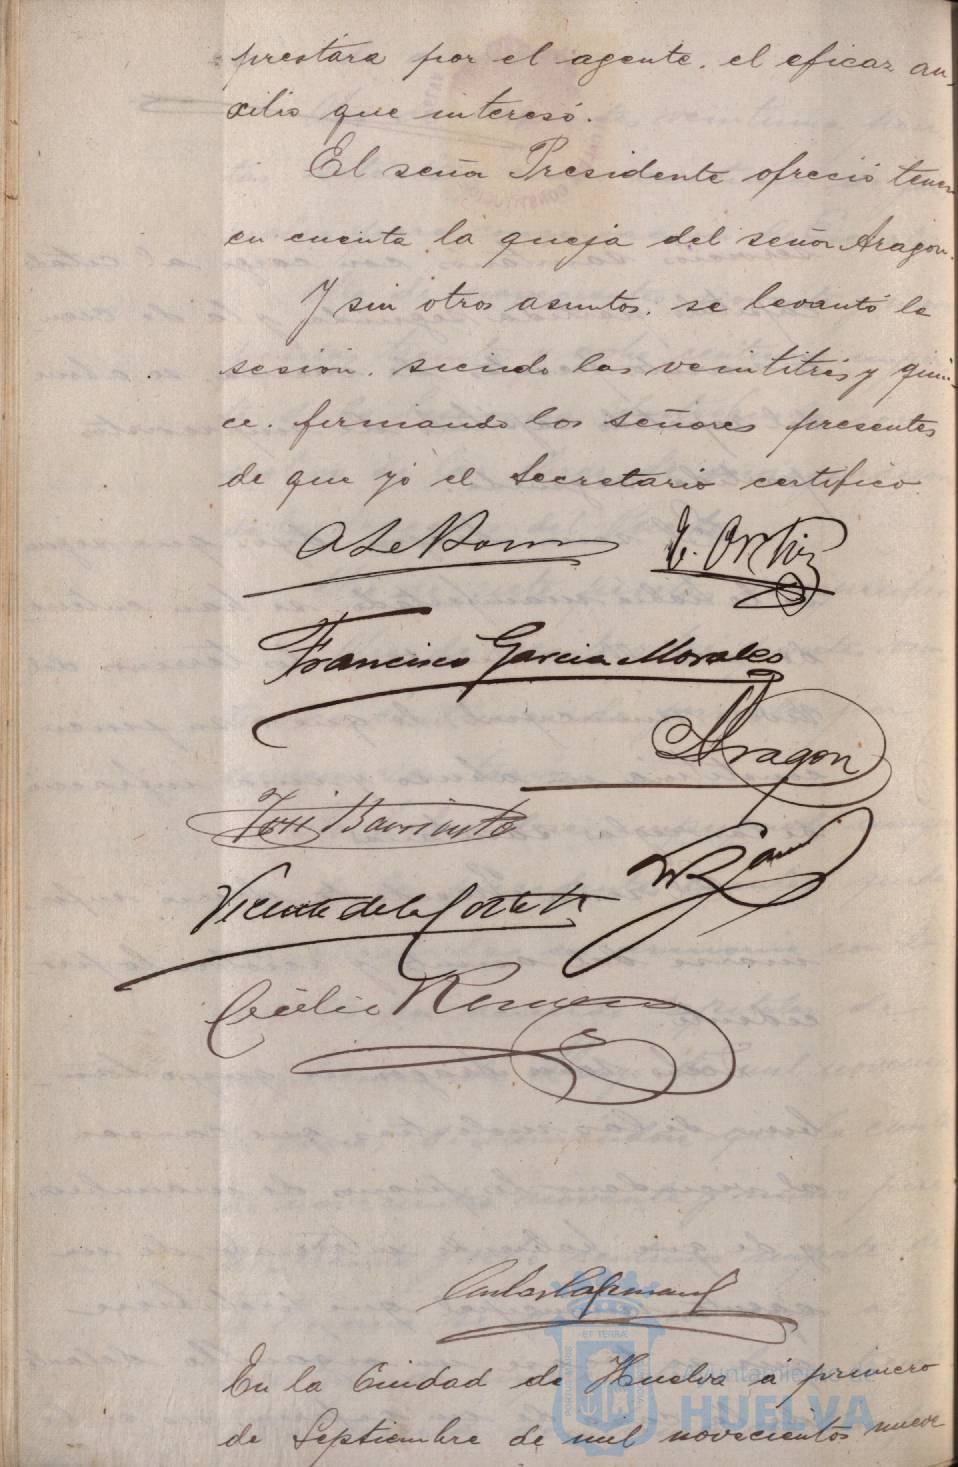 prestara por el agente, el eficaz au-
xilio que interesó.
El señor Presidente ofreció tener
en cuenta la queja del señor Aragon.
Y sin otros asuntos, se levantó la
sesion, siendo las veintitrés y quin-
ce, firmando los señores presentes
de que yó el Secretario certifico.
E. Ortiz
Francisco Garcia Morales
Aragon
José Barrientos
Vicente de la Corte
Cecilio Romero
En la Ciudad de Huelva á primero
de Septiembre de mil novecientos nueve
Ayuntamiento de
HUELVA